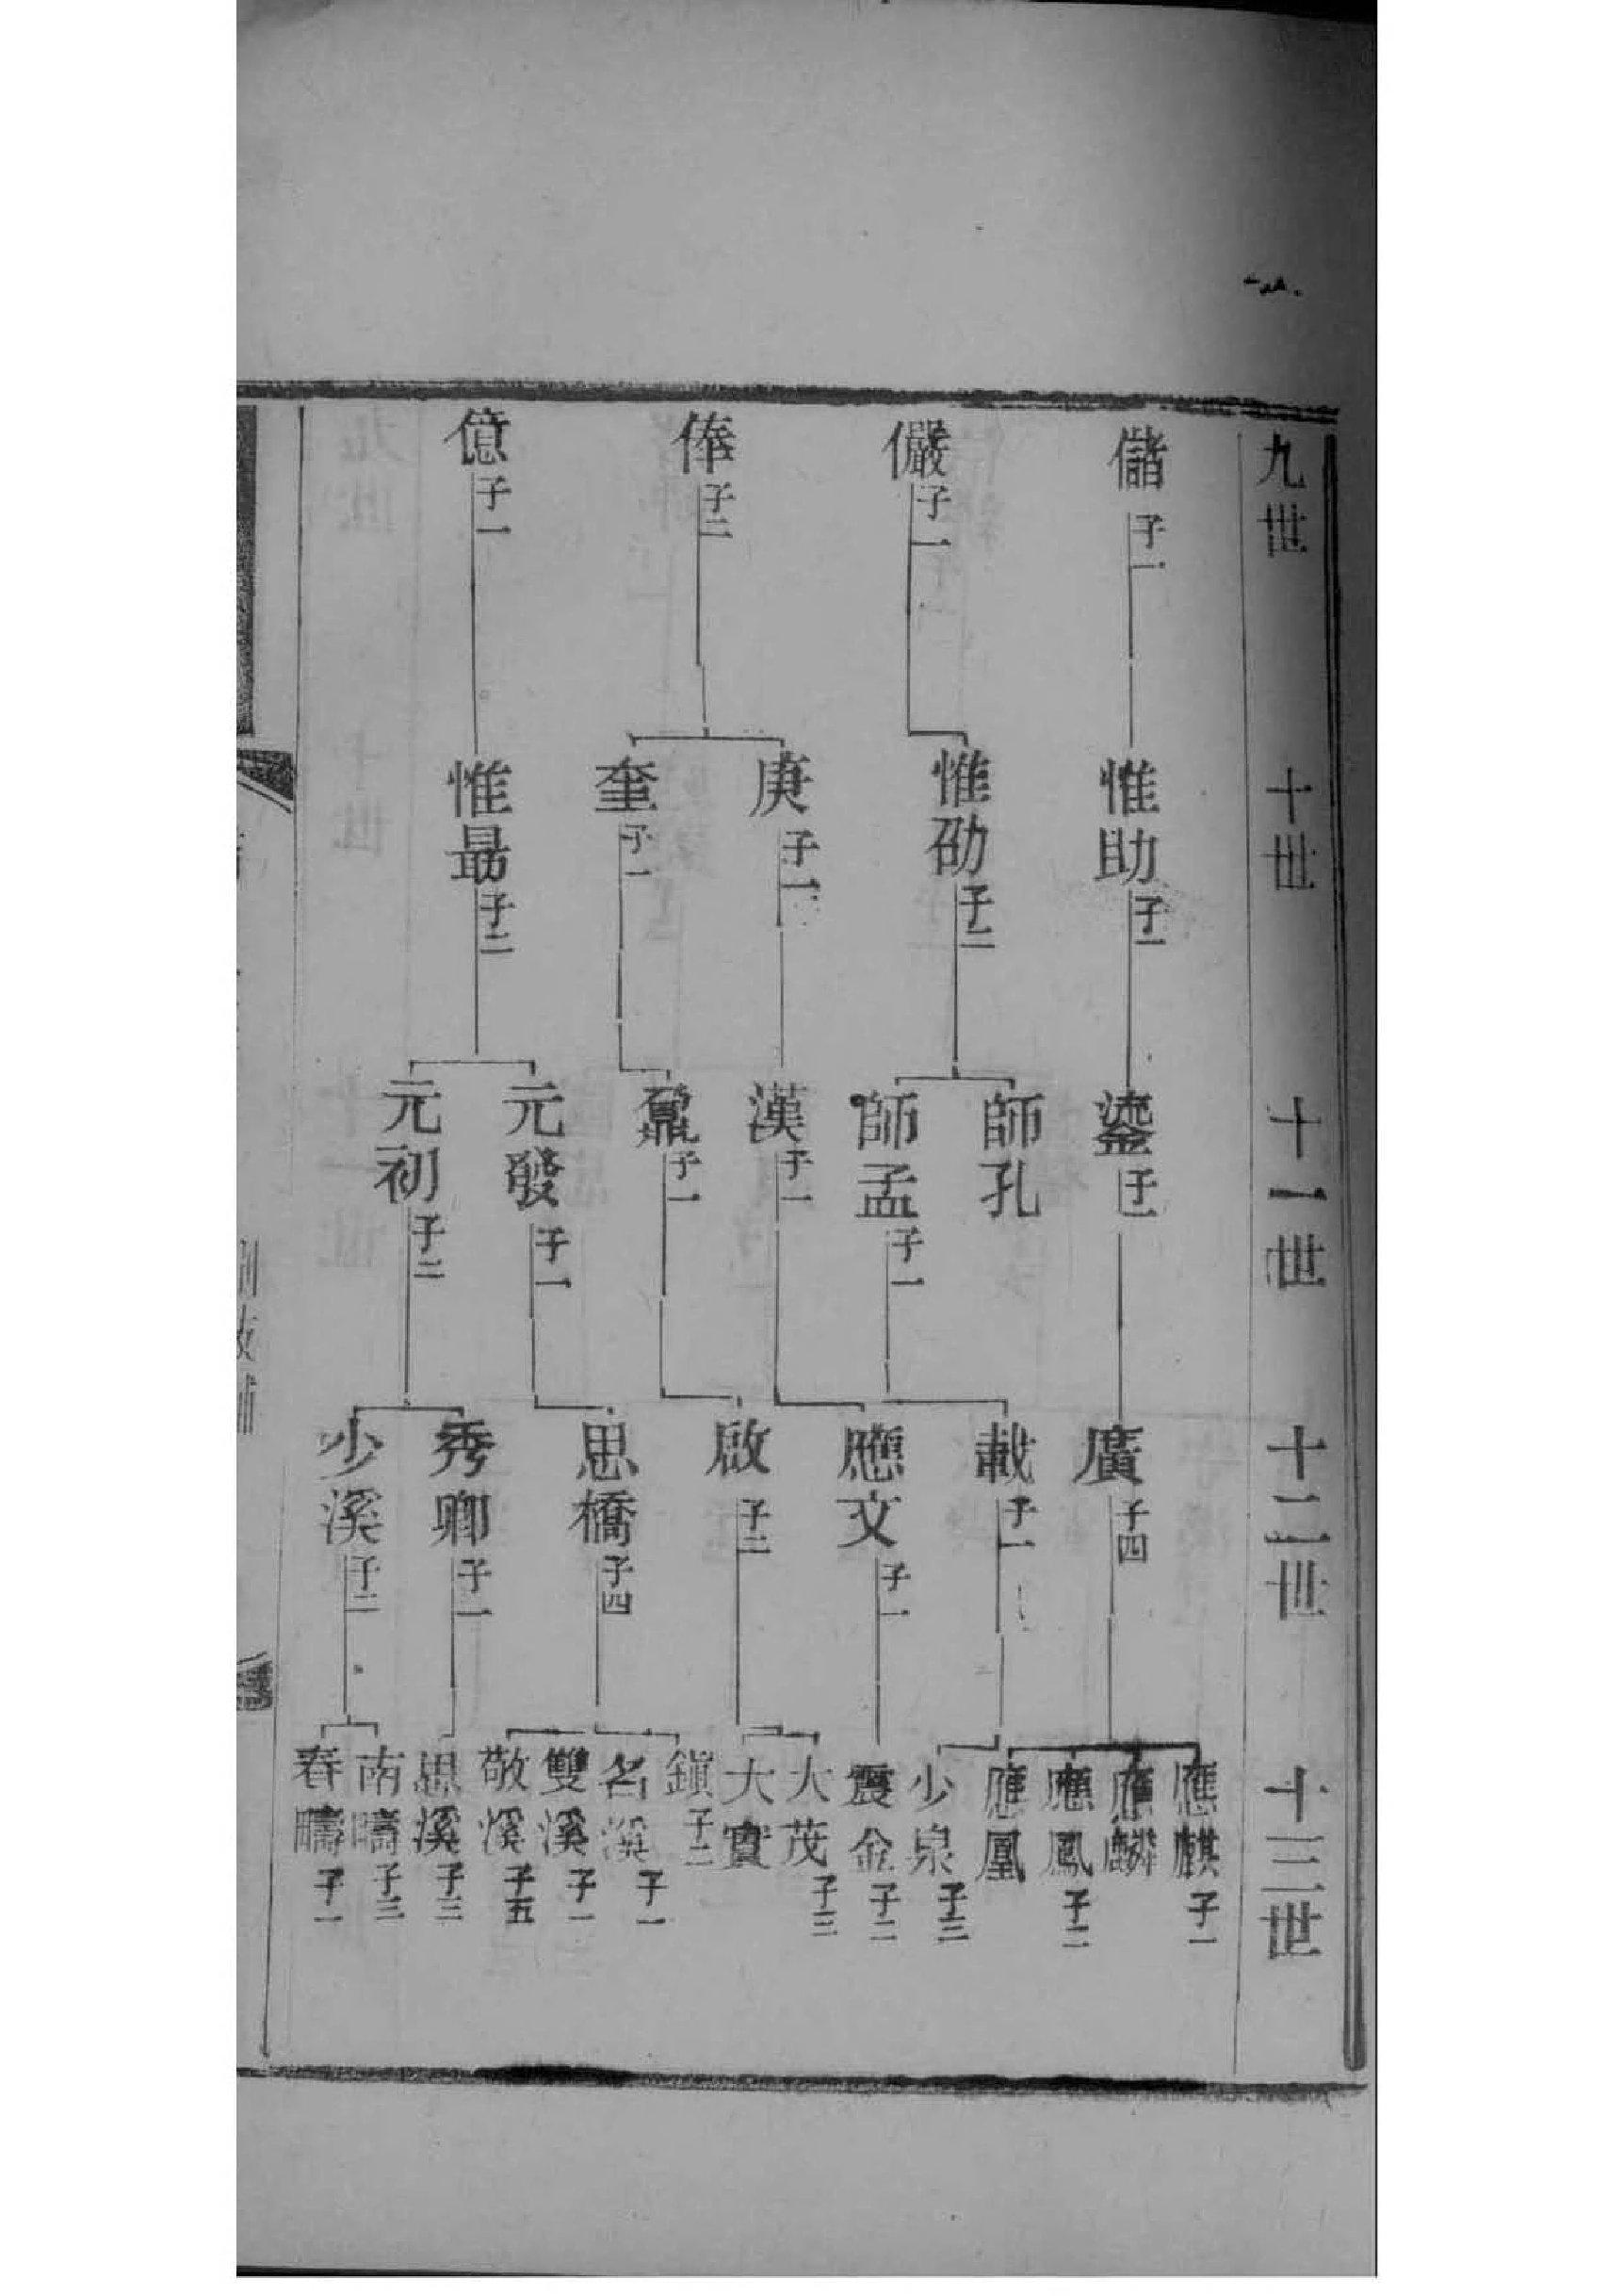 九世
儲 子一
儼 子一
俸 子二
億 子一
十世
惟助 子一
惟劭 子二
庚 子一
奎 子一
惟勗 子二
十一世
鎏 子一
師孔
師孟 子一
漢 子一
鼐 子一
元發 子一
元初 子二
十二世
廣 子四
載 子一
應文 子一
啟 子二
思橋 子四
秀卿 子一
少溪 子二
十三世
應麒 子一
應麟
應鳳 子二
應凰
少泉 子三
震金 子二
大茂 子三
大寶
鎮 子二
名溪 子一
雙溪 子一
敬溪 子五
思溪 子三
南疇 子三
春疇 子一